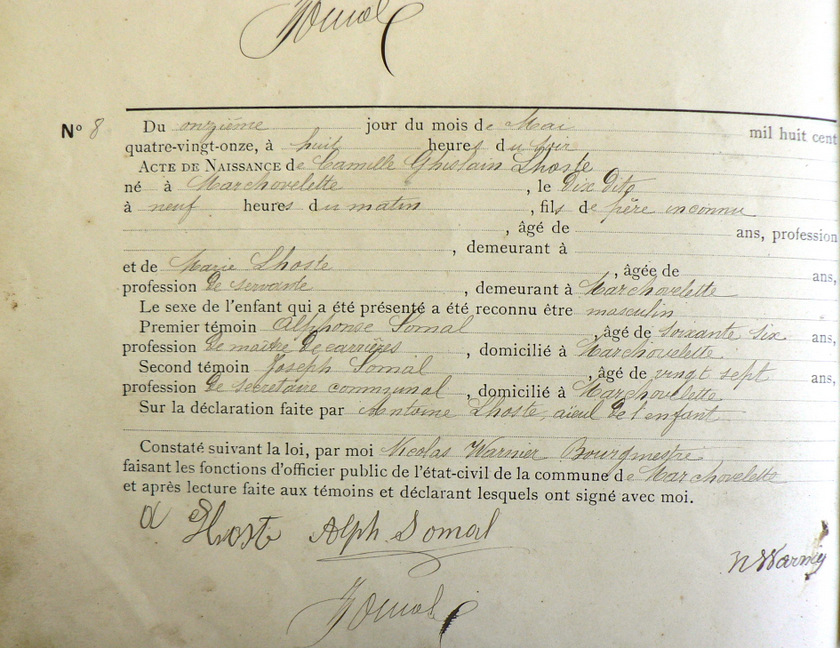 Somal
N° 8 Du onzième jour du mois de Mai mil huit cent
quatre-vingt-onze, à huit heures du soir
ACTE DE NAISSANCE de Camille Ghislain Lhoste
né à Marchovelette, le dix dito
à neuf heures du matin, fils de père inconnu
, âgé de ans, profession
, demeurant à
et de Marie Lhoste, âgée de ans,
profession de servante, demeurant à Marchovelette
Le sexe de l'enfant qui a été présenté a été reconnu être masculin
Premier témoin Alphonse Somal, âgé de soixante six ans,
profession de maître de carrières, domicilié à Marchovelette
Second témoin Joseph Somal, âgé de vingt sept ans,
profession de secrétaire communal, domicilié à Marchovelette
Sur la déclaration faite par Antoine Lhoste, aieul de l'enfant
Constaté suivant la loi, par moi Nicolas Warnier Bourgmestre
faisant les fonctions d'officier public de l'état-civil de la commune de Marchovelette
et après lecture faite aux témoins et déclarant lesquels ont signé avec moi.
a Lhoste Alph Somal
N Warnier
Somal